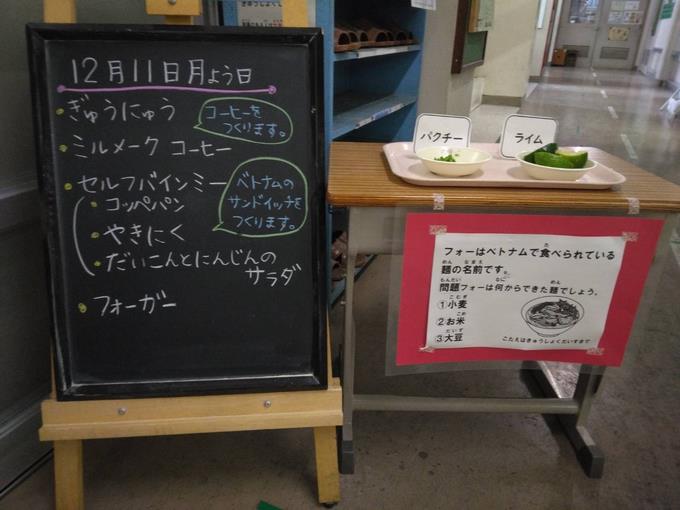 12月11日月よう日
・ぎゅうにゅう
コーヒーを
つくります。
・ミルメーク コーヒー
・セルフバインミー
・コッペパン
・やきにく
・だいこんとにんじんの
サラダ
ベトナムの
サンドイッチを
つくります。
・フォーガー
パクチー
ライム
フォーはベトナムで食べられている
麺の名前です。
問題フォーは何からできた麺でしょう。
①小麦
②お米
③大豆
こたえはきゅうしょくだいすきで